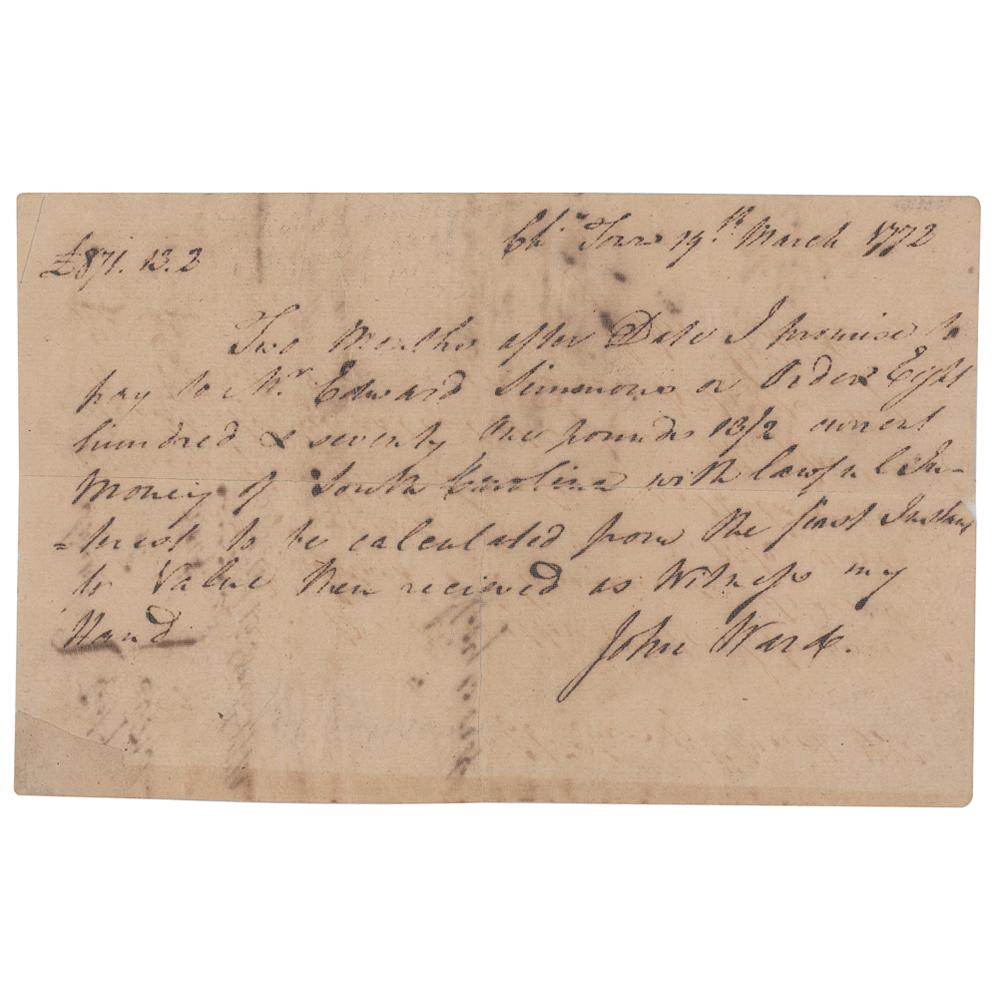 Chs. Town 19th March 1772
£871.13.2
Two Months after Date I promise to
pay to Mr. Edward Simmons or Order Eight
hundred & seventy One pounds 13/2 current
Money of South Carolina with lawful In-
=terest to be calculated from the first Instant
to Value then recieved as Witness my
Hand
John Ward.